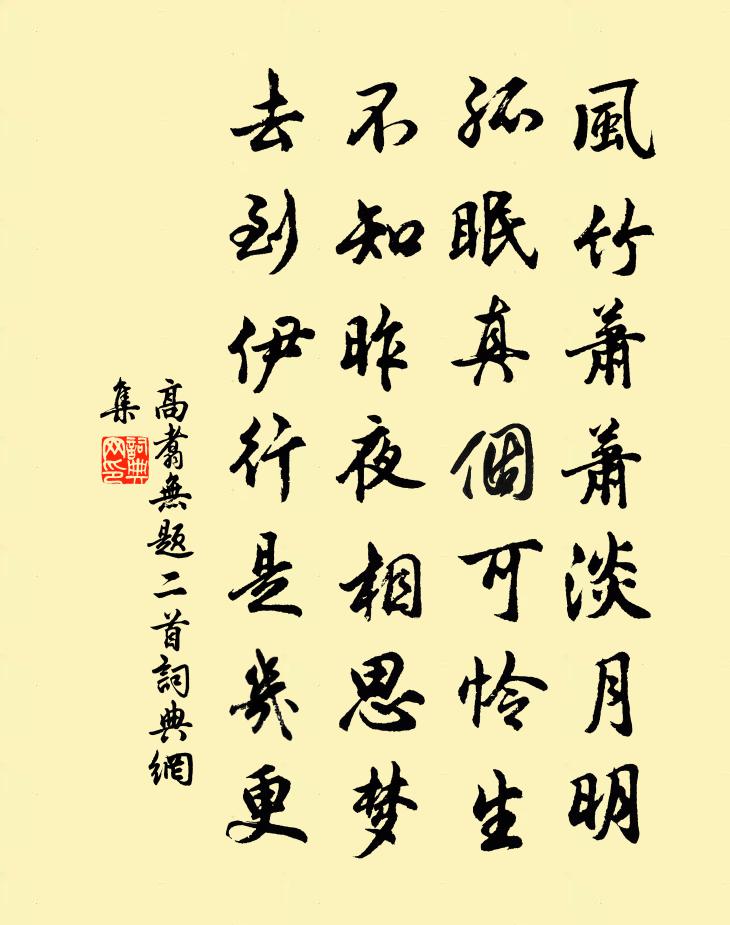 風竹蕭蕭淡月明
孤眠真個可怜生
不知昨夜相思梦
去到伊行是幾更
高翥無題二首詞典網
集
詞典網印